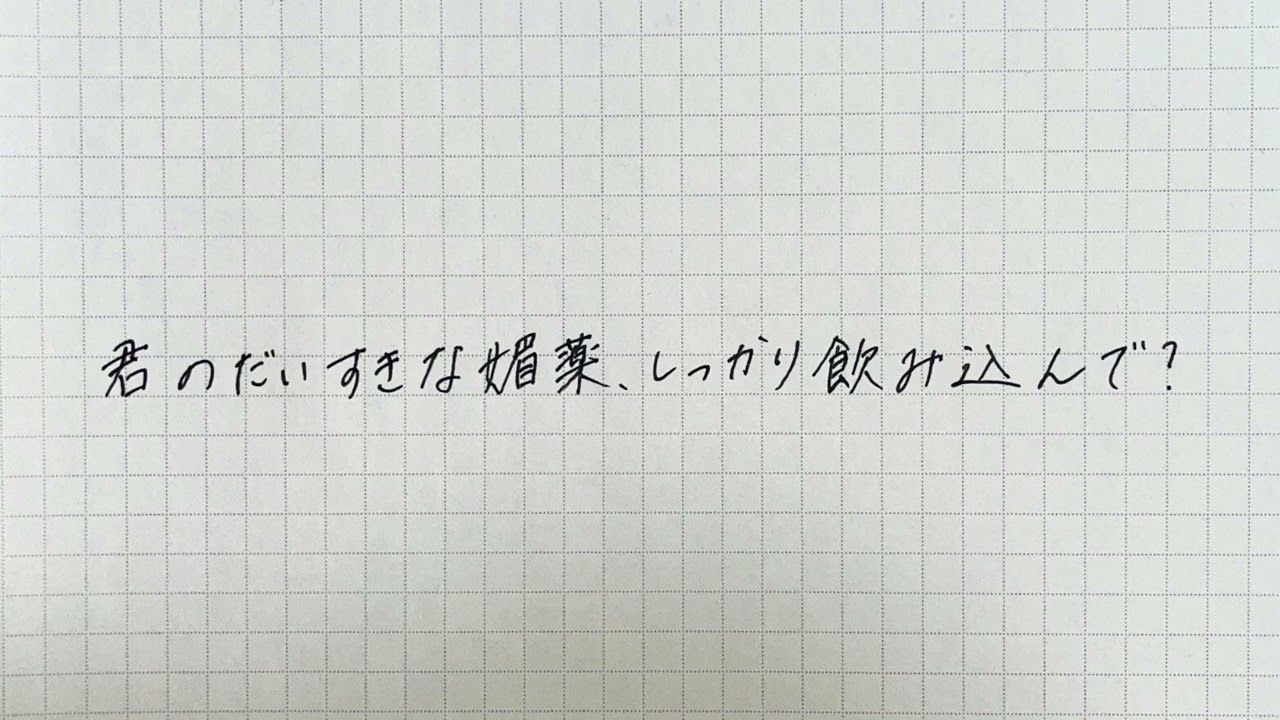 君のだいすきな媚薬、しっかり飲み込んで?